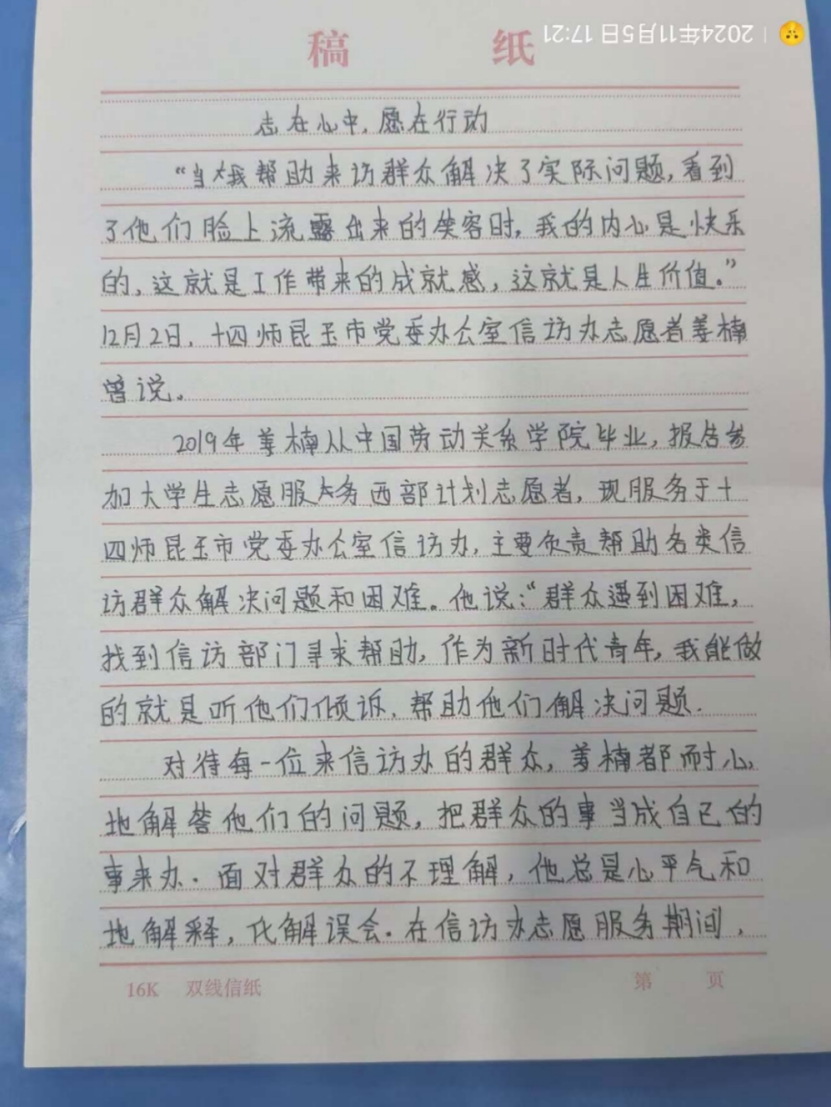 2024年11月5日 17:21
稿 纸
志在心中,愿在行动
“当我帮助来访群众解决了实际问题,看到
了他们脸上流露出来的笑容时,我的内心是快乐
的,这就是工作带来的成就感,这就是人生价值。”
12月2日,十四师昆玉市党委办公室信访办志愿者姜楠
曾说。
2019年姜楠从中国劳动关系学院毕业,报告参
加大学生志愿服务西部计划志愿者,现服务于十
四师昆玉市党委办公室信访办,主要负责帮助各类信
访群众解决问题和困难。他说:“群众遇到困难,
找到信访部门寻求帮助,作为新时代青年,我能做
的就是听他们倾诉,帮助他们解决问题.
对待每一位来信访办的群众,姜楠都耐心
地解答他们的问题,把群众的事当成自己的
事来办.面对群众的不理解,他总是心平气和
地解释,化解误会.在信访办志愿服务期间,
16K 双线信纸 第 页